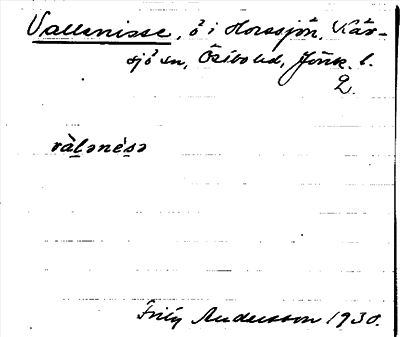 Vallenisse, ö i Horssjön, Kär-
sjö sn, Östbo hd, Jönk. l.
2.
vàlǝnésǝ
Frity Andersson 1930.